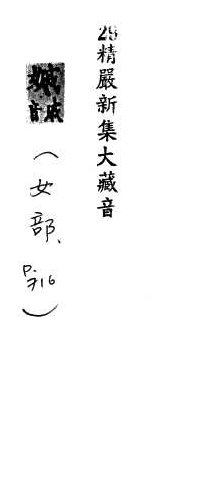 29精嚴新集大藏音
音
(女部、
P.716)